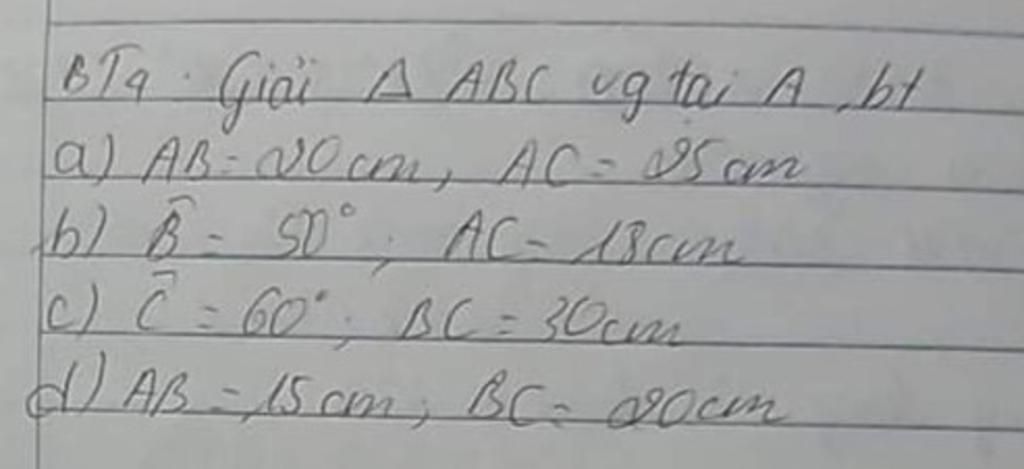 BT4. Giải Δ ABC vg tại A, bt
a) AB = 20cm, AC = 25cm
b) B̂ = 50°, AC = 18cm
c) Ĉ = 60°, BC = 30cm
d) AB = 15cm, BC = 20cm